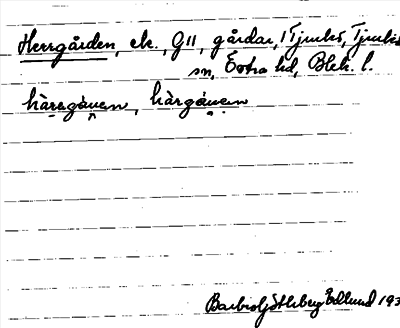 Herrgården, ek., G11, gårdar, i Tjurkö, Tjurkö
sn, Östra hd, Blek. l.
hàregå̀nen, hàrgå̀nen
Barbro Götlsberg Edlund 193